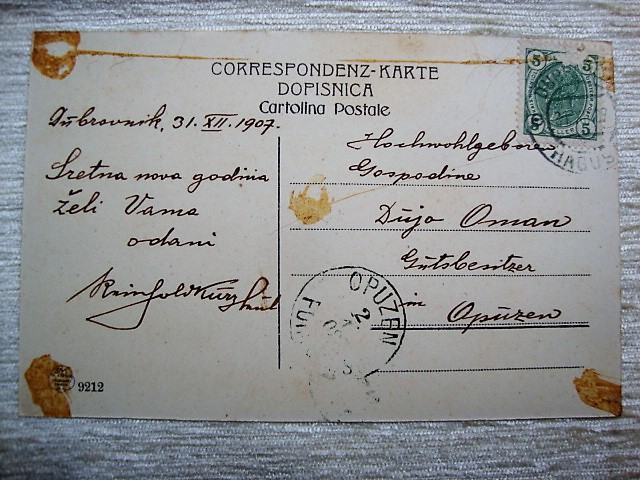 CORRESPONDENZ-KARTE
DOPISNICA
Cartolina Postale
Dubrovnik, 31. XII. 1907.
Sretna nova godina
želi Vama
odani
Hochwohlgeboren
Gospodine
Dujo Oman
Gutsbesitzer
in Opuzen
5 5
5 5
OPUZEN
2
9212